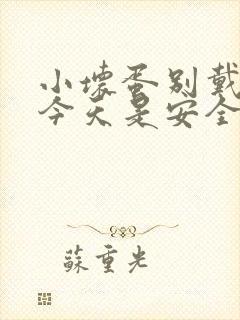 小坏蛋别戴
今天是安全
蘇重光